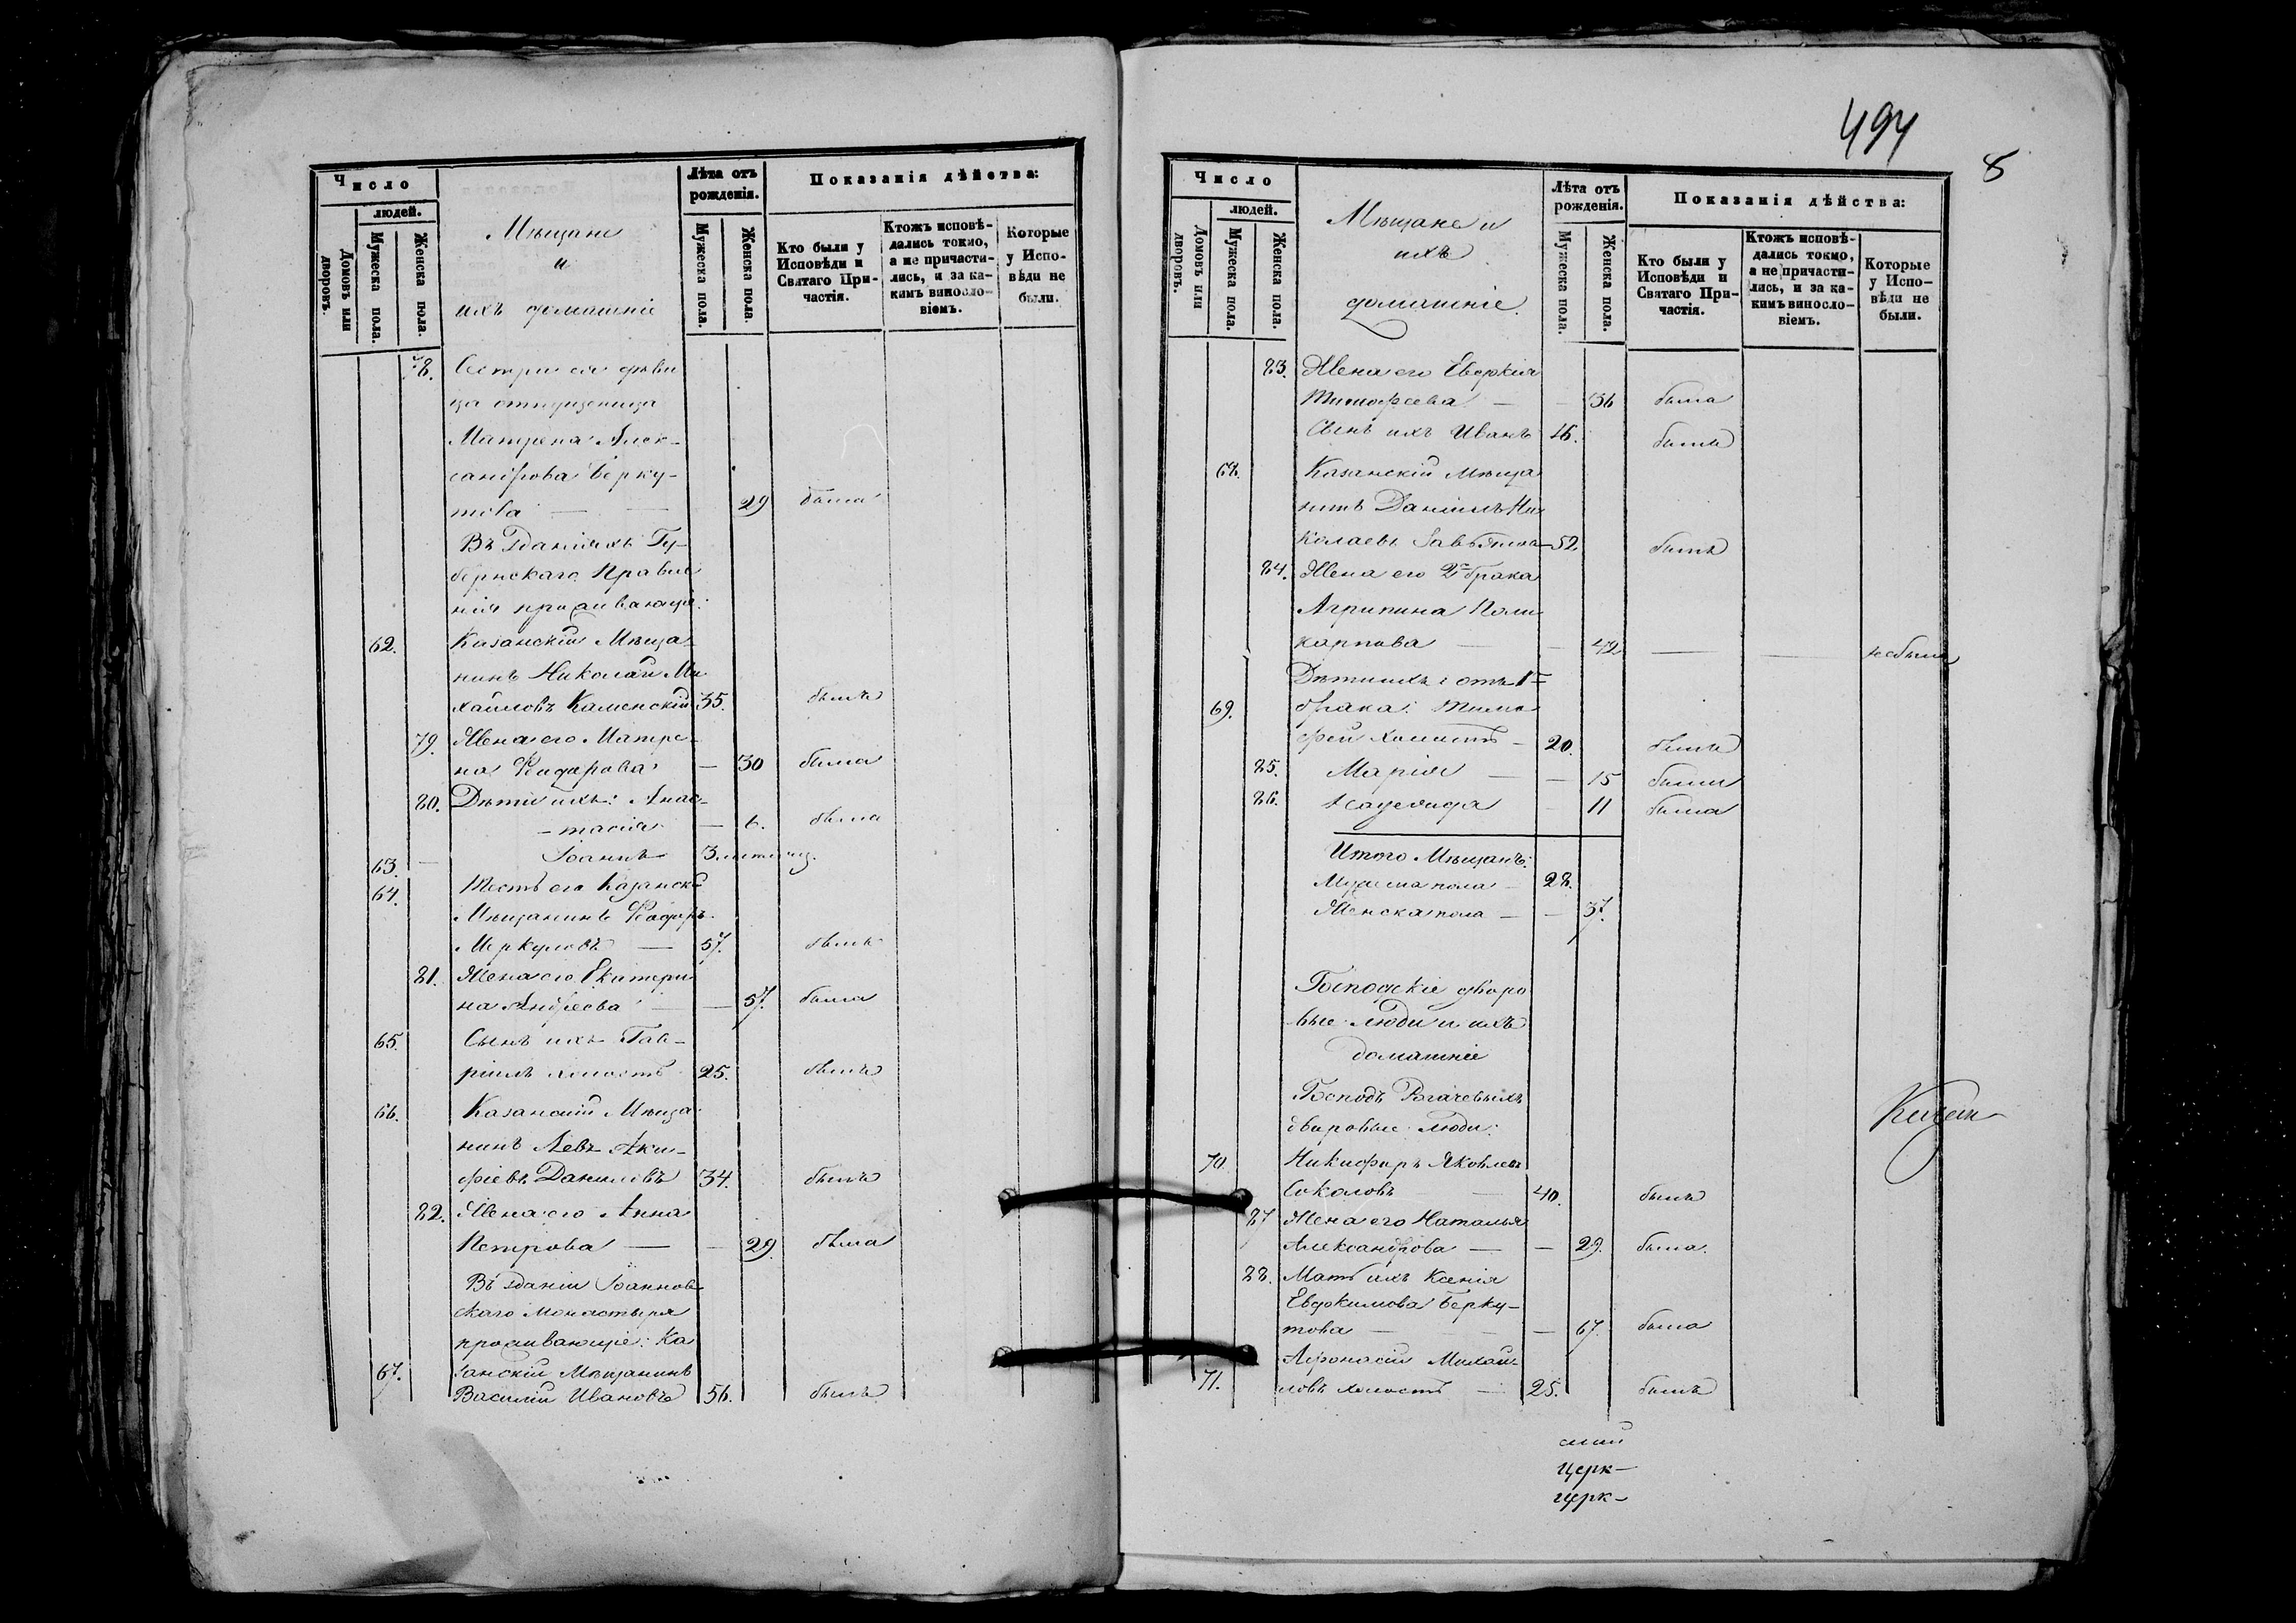 Число
людей.
Домовъ или дворовъ.
Мужеска пола.
Женска пола.
Мѣщане
и
ихъ домашніе
Лѣта отъ рожденія.
Мужеска пола.
Женска пола.
Показанія дѣйства:
Кто были у Исповѣди и Святаго Причастія.
Ктожъ исповѣдались токмо, а не причастились, и за какимъ винословіемъ.
Которые у Исповѣди не были.
78. Сестра ея дѣви
ца отпущеница
Матрена Алек-
сандрова Берку-
това — — 29 была
Въ зданіяхъ Гу-
бернскаго Правле
нія проживающіе:
62. Казанскій Мѣща-
нинъ Николай Ми
хайловъ Каменскій 35. былъ
79. Жена его Матре-
на Ѳедорова — 30 была
80. Дѣти ихъ: Анас-
-тасія — 6. была
63. — Іоаннъ 3.
64. Тесть его Казанскій
Мѣщанинъ Ѳедоръ
Меркуловъ — 57. былъ
81. Жена его Екатери
на Андреева — 57. была
65. Сынъ ихъ Гав-
ріилъ холостъ 25. былъ
66. Казанскій Мѣща
нинъ Левъ Аки-
фіевъ Даниловъ 34. былъ
82. Жена его Анна
Петрова — — 29. была
Въ зданіи Іоаннов
скаго Монастыря
проживающіе: Ка
67. занскій Мѣщанинъ
Василій Ивановъ 56. былъ
494
8
Число
людей.
Домовъ или дворовъ.
Мужеска пола.
Женска пола.
Мѣщане и
ихъ
домашніе.
Лѣта отъ рожденія.
Мужеска пола.
Женска пола.
Показанія дѣйства:
Кто были у Исповѣди и Святаго Причастія.
Ктожъ исповѣдались токмо, а не причастились, и за какимъ винословіемъ.
Которые у Исповѣди не были.
83. Жена его Евдокія
Тимофеева — — 36 была
Сынъ ихъ Иванъ 16. былъ
68. Казанскій Мѣща
нинъ Даніилъ Ни
колаевъ 52 былъ
84. Жена его 2го брака
Агрипина Поли
карпова — — 42 — — не была
Дѣти ихъ: отъ 1го
69. брака: Тимо
фей холостъ — 20. былъ
85. Марія — — 15 была
86. — 11 была
Итого Мѣщанъ:
Мужеска пола — 28.
Женска пола — — 37.
Господскіе дворо
вые люди и ихъ
домашніе
Господъ Рогачевыхъ
дворовые люди:
70. Никифоръ Яковлевъ
Соколовъ — 40. былъ
87 Жена его Наталья
Александрова — — 29. была.
88. Мать ихъ Ксенія
Евдокимова Берку-
това — — — 67. была
Афонасій Михай-
71. ловъ холостъ — 25. былъ
церк-
церк-